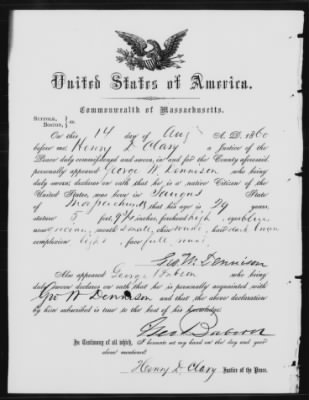 United States of America.
Commonwealth of Massachusetts.
SUFFOLK,
BOSTON, } ss.
On this 14 day of Aug A. D. 1860
before me, Henry D Clary a Justice of the
Peace duly commissioned and sworn, in and for the County aforesaid
personally appeared George W. Dennison who being
duly sworn, declares on oath that he is a native Citizen of the
United States, was born in State
of Massachusetts that his age is 29 years,
stature 5 feet, inches, forehead high, eyes blue
nose mouth small, chin hair dark brown
complexion light, face full,
Geo. W. Dennison
Also appeared George Babson who being
duly sworn declares on oath that he is personally acquainted with
Geo W Dennison and that the above declaration
by him subscribed is true to the best of his knowledge.
Geo Babson
In Testimony of all which, I hereunto set my hand on the day and year
above mentioned.
Henry D Clary Justice of the Peace.